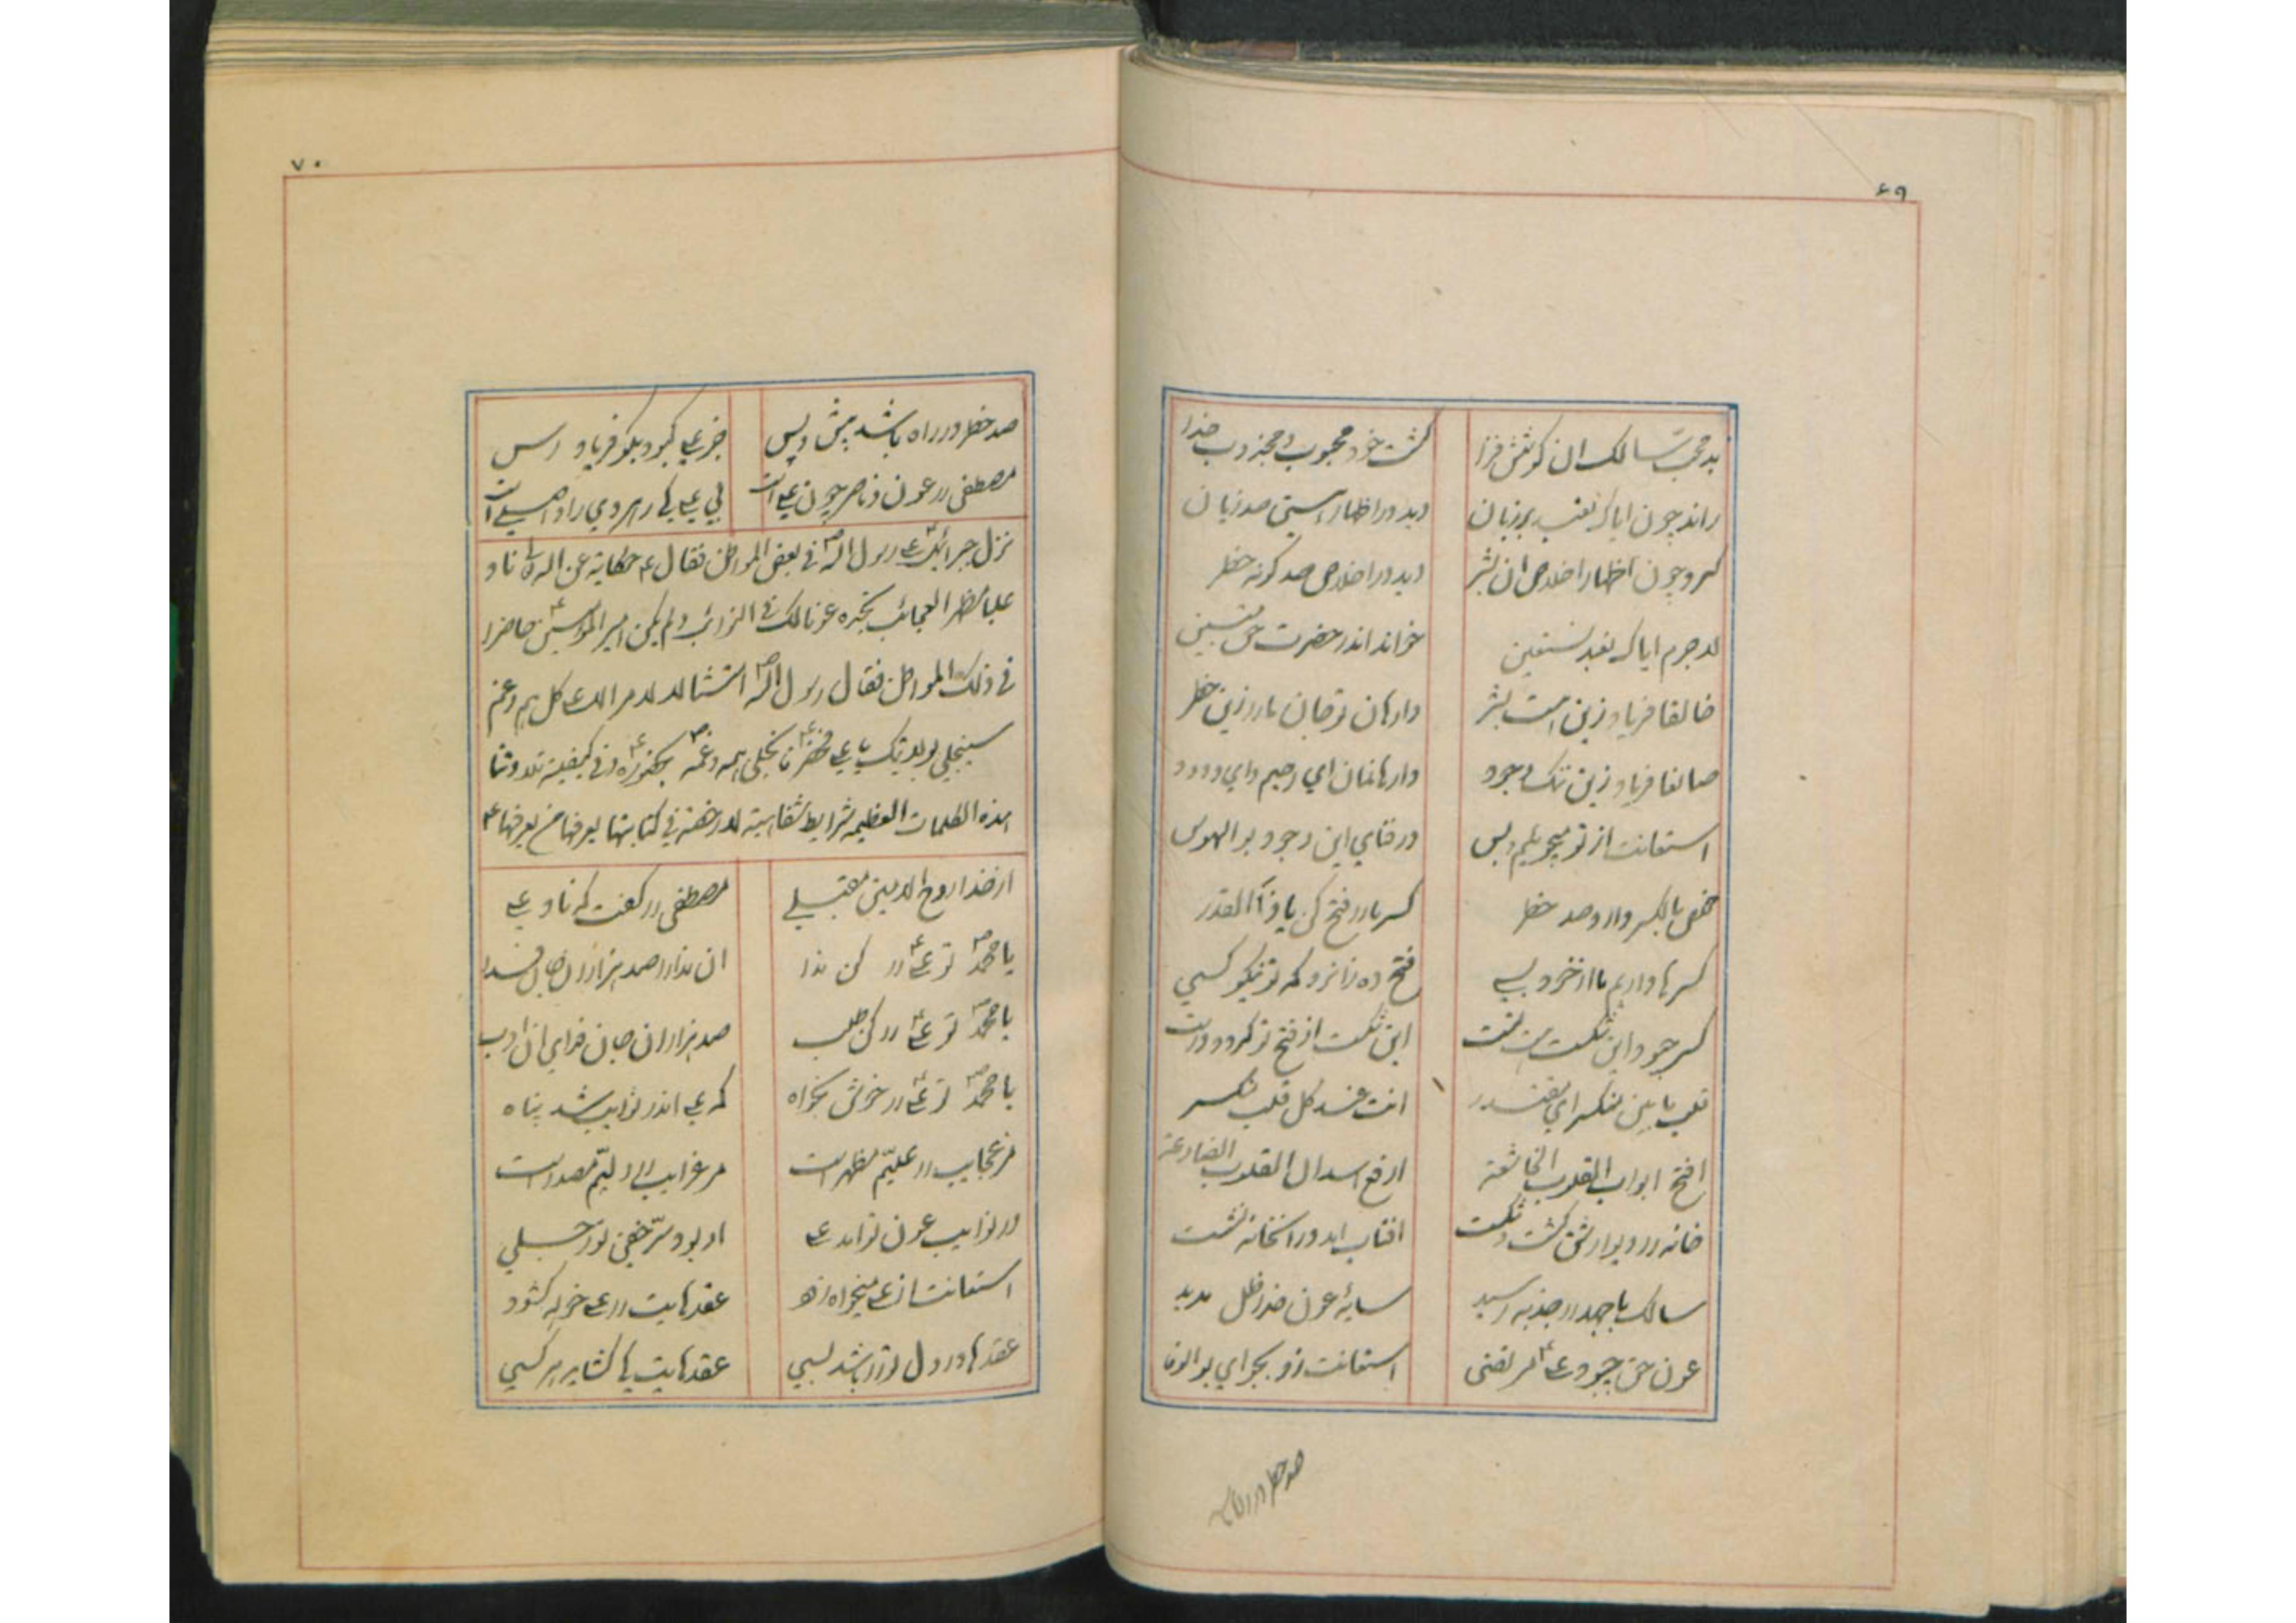 ۶۹
بد محب سالک ان کوشش فزا گشت خود محبوب و مجذوب خدا
راند چون ایاک نعبد بر زبان دید در اظهار هستی صد زیان
کرد چون اظهار اخلاص ان بشر دید در اخلاص صد کونه خطر
لاجرم ایاک نعبد نستعین خواند اندر حضرت حق
خالقا فریاد زین بشر وارهان تو جان ما را زین خطر
صانعا فریاد زین وجود وارهانمان ای رحیم و ای ودود
استعانت از تو میجوییم و بس در فنای این وجود بوالهوس
خفض بالکسر دارد صد خطر کسر ما را فتح کن یا ذا القدر
کسرها داریم ما از خود بسی فتح ده زانرو که تو نیکو کسی
کسر چبود این شکست این شکست از فتح تو کردد درست
قلب ما بین منکسر ای مقتدر انت عند کل قلب منکسر
افتح ابواب القلوب الخاشعة ارفع اسدال القلوب الضارعة
خانه را دیوارش کشت و شکست افتاب اندر انخانه نشست
سالک با جهد را جذبه رسید سایهٔ عون خدا ظل مدید
عون حق چبود علی مرتضی استعانت زو بجو ای بوالوفا
صد خطر در راه
۷۰
صد خطر در راه باشد پیش و پس جز علی کبود بکو فریاد رس
مصطفی را عون و ناصر چون علی است بی علی کی رهروی را واصلی است
نزل جبرائیل علی رسول الله ص فی بعض المواطن فقال ع حکایة عن الله ناد
علیا مظهر العجائب تجده عونا لک فی النوائب و لم یکن امیر المؤمنین ع حاضرا
فی ذلک المواطن فقال رسول الله ص امتثالا لامر الله کل هم و غم
سینجلی بولایتک یا علی فحضر ع فانجلی همه و غمه ص بحضوره ع و فی کیفیة تلاوتنا
هذه الکلمات العظیمه شرایط لا رخصة فی کتابتها یعرفها من یعرفها
از خدا روح الامین مصطفی را گفت که ناد علی
یا محمد ص تو علی ع را کن ندا ان ندا را صد هزاران جان فدا
یا محمد ص تو علی ع را کن طلب صد هزاران جان فدای ان ادب
یا محمد ص تو علی ع را خوش بخواه که علی اندر نوایب شد پناه
مر عجایب را علیم مظهر است مر غرایب را ولیم مصدر است
در نوایب عون تو امد علی او بود سر خفی نور جلی
استعانت از علی میخواه زود عقدهایت را علی خواهد کشود
عقدها در دل تو را باشد بسی عقدهایت کی کشاید هر کسی